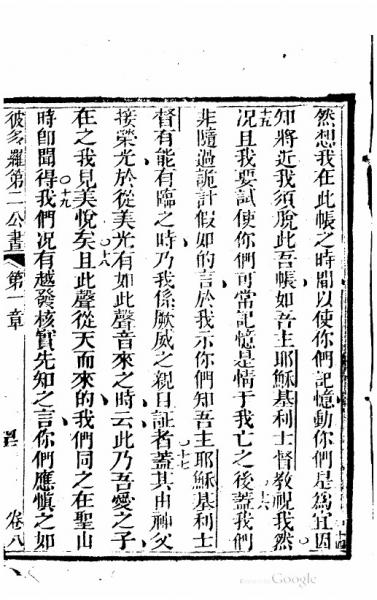 然想我在此帳之時間以使你們記憶動你們是為宜因
十四
知將近我須脫此吾帳如吾主耶穌基利士督教視我然
十五
況且我要試使你們可常記憶是情于我亡之後蓋我們
十六
非隨過詭計假如的言於我示你們知吾主耶穌基利士
督有能有臨之時乃我係厥威之親目証者蓋其由神父
十七
接榮光於從美光有如此聲音來之時云此乃吾愛之子
在之我見美悅矣且此聲從天而來的我們同之在聖山
十八
時即聞得我們況有越發核實先知之言你們應慎之如
十九
彼多羅第二公書 第一章 卷八
Google